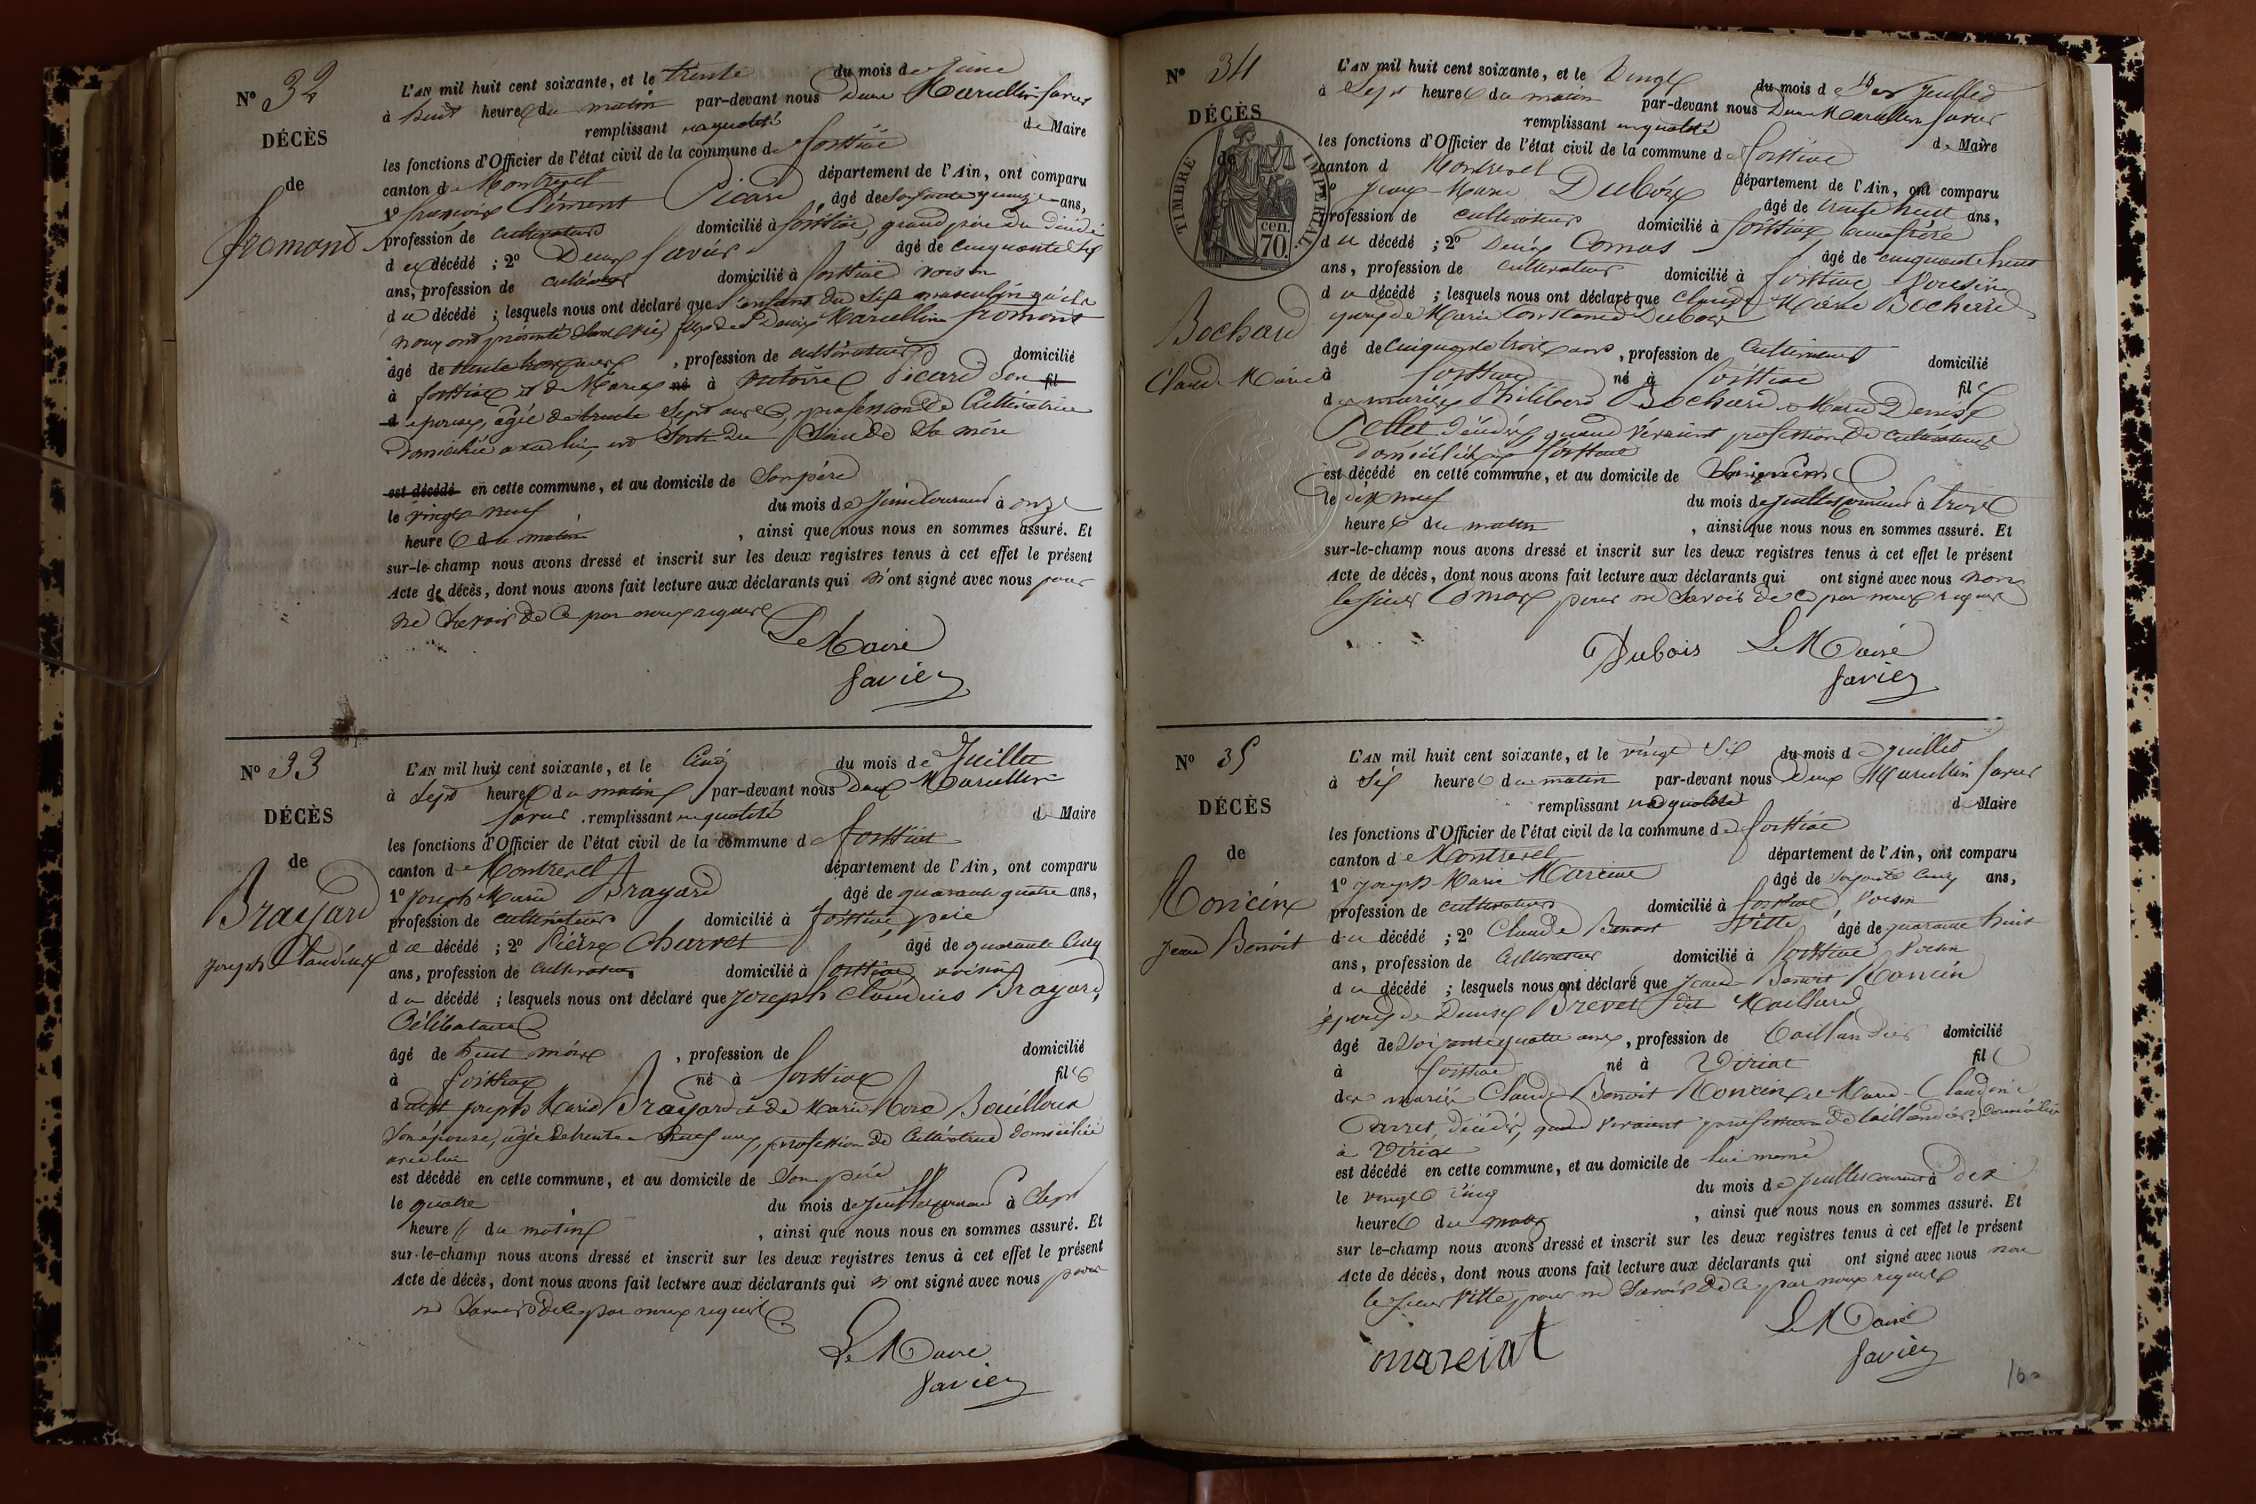 N° 32
DÉCÈS
de
Fromont
L'AN mil huit cent soixante, et le trente du mois de Juin
à huit heures du matin par-devant nous Denis Marcellin Favier
remplissant en qualité de Maire
les fonctions d'Officier de l'état civil de la commune de foissiat
canton de Montrevel département de l'Ain, ont comparu
1° françois Clément Picard âgé de soixante quinze ans,
profession de cultivateur domicilié à foissiat, grand père du décédé
d u décédé ; 2° Denis favier âgé de cinquante six
ans, profession de cultivateur domicilié à foissiat voisin
d u décédé ; lesquels nous ont déclaré que l'enfant du sexe masculin qu'ils
nous ont présenté sans vie, fils de Denis Marcellin fromont
âgé de trente ans, profession de cultivateur domicilié
à foissiat et de Marie né à victoire Picard son fil
d épouse, âgée de trente sept ans, profession de Cultivatrice
domiciliée avec lui, est sorti du sein de sa mère
est décédé en cette commune, et au domicile de son père
le vingt neuf du mois de Juin courant à onze
heures du matin, ainsi que nous nous en sommes assuré. Et
sur-le-champ nous avons dressé et inscrit sur les deux registres tenus à cet effet le présent
Acte de décès, dont nous avons fait lecture aux déclarants qui n'ont signé avec nous pour
ne savoir de ce par nous requis
Le Maire
favier
N° 33
DÉCÈS
de
Brayard
Joseph Claudius
L'AN mil huit cent soixante, et le Cinq du mois de Juillet
à sept heures du matin par-devant nous Denis Marcellin
favier remplissant en qualité de Maire
les fonctions d'Officier de l'état civil de la commune de foissiat
canton de Montrevel département de l'Ain, ont comparu
1° Joseph Marie Brayard âgé de quarante quatre ans,
profession de cultivateur domicilié à foissiat, père
d u décédé ; 2° Pierre Charvet âgé de quarante cinq
ans, profession de cultivateur domicilié à foissiat, voisin
d u décédé ; lesquels nous ont déclaré que Joseph Claudius Brayard,
Célibataire
âgé de huit mois, profession de domicilié
à foissiat né à foissiat fils
de Joseph Marie Brayard et de Marie Rose Bouilloux
son épouse, âgée de trente neuf ans, profession de Cultivatrice domiciliée
avec lui
est décédé en cette commune, et au domicile de son père
le quatre du mois de Juillet courant à sept
heure s du matin, ainsi que nous nous en sommes assuré. Et
sur-le-champ nous avons dressé et inscrit sur les deux registres tenus à cet effet le présent
Acte de décès, dont nous avons fait lecture aux déclarants qui n'ont signé avec nous pour
ne savoir de ce par nous requis
Le Maire
favier
N° 34
DÉCÈS
de
TIMBRE IMPÉRIAL
70 cen.
Bochard
Claude Marie
L'AN mil huit cent soixante, et le Vingt du mois de Juillet
à sept heures du matin par-devant nous Denis Marcellin favier
remplissant en qualité de Maire
les fonctions d'Officier de l'état civil de la commune de foissiat
canton d Montrevel département de l'Ain, ont comparu
1° Jean-Marie Dubois âgé de trente huit ans,
profession de cultivateur domicilié à foissiat beau frère
d u décédé ; 2° Denis Comas âgé de cinquante huit
ans, profession de cultivateur domicilié à foissiat Voisin
d u décédé ; lesquels nous ont déclaré que Claude Marie Bochard
époux de Marie Constance Dubois
âgé de cinquante trois ans, profession de Cultivateur domicilié
à foissiat né à foissiat fils
des mariés Philibert Bochard et Marie Denise
Pellet décédés, quand vivaient profession de cultivateurs
domiciliés à foissiat
est décédé en cette commune, et au domicile de
le dix neuf du mois de Juillet courant à trois
heures du matin, ainsi que nous nous en sommes assuré. Et
sur-le-champ nous avons dressé et inscrit sur les deux registres tenus à cet effet le présent
Acte de décès, dont nous avons fait lecture aux déclarants qui ont signé avec nous non
le sieur Comas pour ne savoir de ce par nous requis
Dubois Le Maire
favier
N° 35
DÉCÈS
de
Roncin
Jean Benoit
L'AN mil huit cent soixante, et le vingt six du mois de Juillet
à six heures du matin par-devant nous Denis Marcellin favier
remplissant en qualité de Maire
les fonctions d'Officier de l'état civil de la commune de foissiat
canton de Montrevel département de l'Ain, ont comparu
1° Joseph Marie Marciat âgé de soixante cinq ans,
profession de cultivateur domicilié à foissiat, Voisin
d u décédé ; 2° Claude Benoit Vitte âgé de quarante huit
ans, profession de Cultivateur domicilié à foissiat Voisin
d u décédé ; lesquels nous ont déclaré que Jean Benoit Roncin
époux de Denise Brevet dit Maillard
âgé de soixante quatre ans, profession de taillandier domicilié
à foissiat né à Viriat fils
des mariés Claude Benoit Roncin et Marie Claudine
décédés, quand vivaient profession de taillandier domiciliés
à Viriat
est décédé en cette commune, et au domicile de lui même
le vingt cinq du mois de Juillet courant à dix
heures du matin, ainsi que nous nous en sommes assuré. Et
sur le-champ nous avons dressé et inscrit sur les deux registres tenus à cet effet le présent
Acte de décès, dont nous avons fait lecture aux déclarants qui ont signé avec nous non
le sieur Vitte, pour ne savoir de ce par nous requis
Le Maire
marciat favier
160